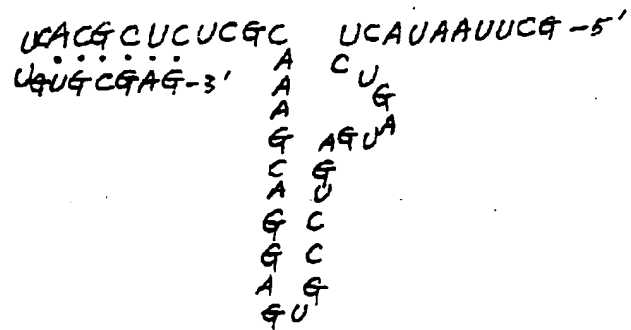 UCACGCUCUCGC UCAUAAUUCG-5'
A C
UGUGCGAG-3' A U
A G
G AGUA
C G
A U
G C
G C
A G
GU